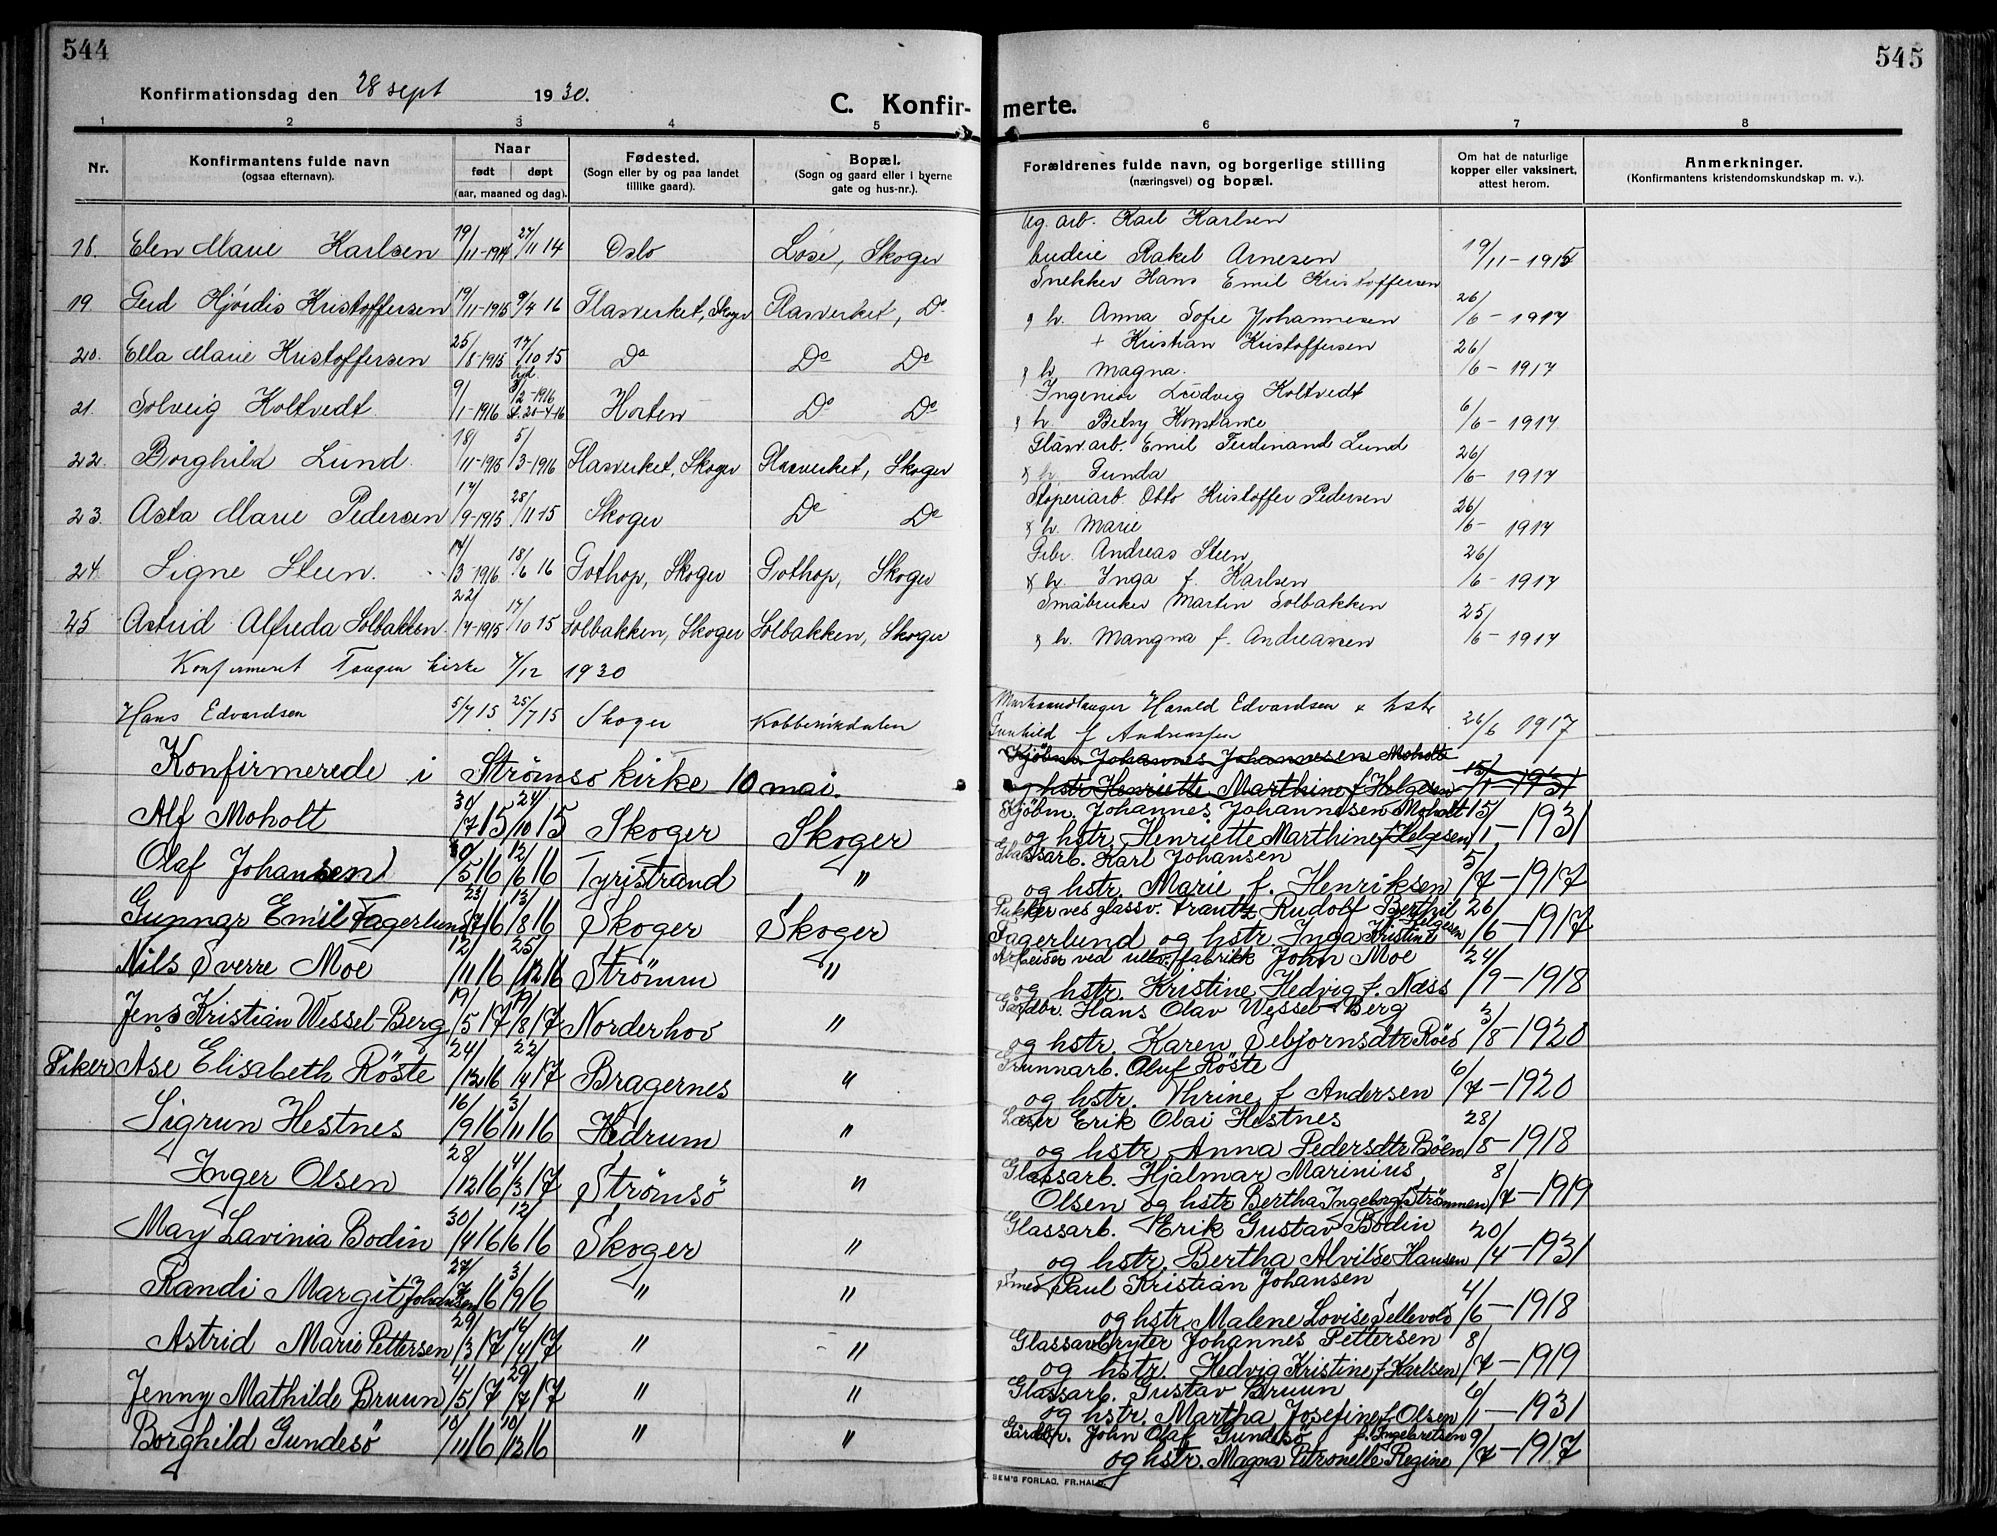 544
545
Konfirmationsdag den 28 sept 1930.
C. Konfir-
merte.
1 2 3 4 5
6 7 8
Nr.
Konfirmantens fulde navn
(ogsaa efternavn).
Naar
født døpt
(aar, maaned og dag).
Fødested.
(Sogn eller by og paa landet
tillike gaard).
Bopæl.
(Sogn og gaard eller i byerne
gate og hus-nr.).
Forældrenes fulde navn, og borgerlige stilling
(næringsvei) og bopæl.
Om hat de naturlige
kopper eller vaksinert,
attest herom.
Anmerkninger.
(Konfirmantens kristendomskundskap m. v.).
Ug. arb. Karl Karlsen
18. Elen Marie Karlsen 19/11-1914 27/11 14 Oslo Løse, Skoger
budeie Rakel Arnesen 19/11-1915
Snekker Hans Emil Kristoffersen
19. Gerd Hjørdis Kristoffersen 19/11-1915 9/4 16 Glasverket, Skoger Glasverket, Do
h. Anna Sofie Johannesen 26/6-1917
+ Kristian Kristoffersen
20. Ella Marie Kristoffersen 25/8-1915 17/10 15 Do Do Do
h. Magna. 26/6-1917
Ingeniør Ludvig Holtvedt
21. Solveig Holtvedt 9/1-1916 hjd. 3/2-1916 20-4-16 Horten Do Do
h. Betsy Konstance 6/6-1917
Glasv.arb. Emil Ferdinand Lund
22. Borghild Lund. 18/11-1915 5/3-1916 Glasverket, Skoger Glasverket, Skoger
h. Gunda 26/6-1917
Støperiarb. Otto Kristoffer Pedersen
23. Asta Marie Pedersen 17/9-1915 28/11 15 Skoger Do Do
& h. Marie 26/6-1917
Grbr. Andreas Steen
24. Signe Steen. 14/3 1916 18/6 16 Gothop, Skoger Gothop, Skoger
& h. Inga f. Karlsen 26/6-1917
Småbruker Marten Solbakken
25 Astrid Alfreda Solbakken 22/7-1915 17/10 15 Solbakken, Skoger Solbakken, Skoger
h. Mangna f. Andreassen 25/6-1917
Konfirmeret Tangen kirke 7/12 1930
Hans Edvardsen 5/7 15. 25/7 15 Skoger Kobbervikdalen
Murhaandlanger Harald Edvardsen & hstr
Gunhild f Andreassen 26/6 1917
Konfirmerede i Strømsø kirke 10 mai.
Kjøbm. Johannes Johannesen Moholt
og hstr Henriette Marthine f Helgesen 15/1-1931
Alf Moholt 30/7 15 24/10 15 Skoger Skoger
Kjøbm. Johannes Johannesen Moholt
og hstr. Henriette Marthine f Helgesen 15/1-1931
Olaf Johansen 30/5 16 12/6 16 Tyristrand "
Glassarb. Karl Johansen
og hstr Marie f. Henriksen 5/7-1917
Gunnar Emil Fagerlund 23/7 16 13/8 16 Skoger Skoger
Pukker ves glassv. Frantz Rudolf Berthil
Fagerlund og hstr Inga Kristine f Helgesen 26/6-1917
Nils Sverre Moe 12/11 16 25/12 16 Strømm "
Arbeider ved ullv. fabrikk John Moe
og hstr. Kristine Hedvig f. Næss 24/9-1918
Jens Kristian Wessel-Berg 19/5 17 19/8 17 Norderhov "
Gårdbr. Hans Olav Wessel-Berg
og hstr. Karen Sebjørnsdtr Röed 3/8-1920
Piker Åse Elisabeth Röste 24/12 16 22/4 17 Bragernes "
Grunnarb. Oluf Röste
og hstr. Thrine f Andersen 6/7-1920
Sigrun Hestnes 16/9 16 3/11 16 Hedrum "
Lærer Erik Olai Hestnes
og hstr Anna Pedersdtr Böen 28/8-1918
Inger Olsen 28/12 16 4/3 17 Strømsö "
Glassarb. Hjalmar Marinius
Olsen og hstr Bertha Ingeborg f Strømmen 8/7-1919
May Lavinia Bodin 30/4 16 12/6 16 Skoger "
Glassarb. Erik Gustav Bodin
og hstr. Bertha Alvilde Hansen 20/4-1931
Randi Margit Johansen 27/7 16 3/9 16 " "
Smed Paul Kristian Johansen
og hstr Malene Lovise Sellevold 4/6-1918
Astrid Marie Pettersen 29/3 17 16/4 17 " "
Glassavbryter Johannes Pettersen
og hstr. Hedvig Kristine f Karlsen 8/7-1919
Jenny Mathilde Bruun 4/5 17 29/7 17 " "
Glassarb. Gustav Bruun
og hstr. Martha Josefine f Olsen 6/1-1931
Borghild Gundesö 10/11 16 10/12 16 " "
Gårdbr. John Olaf Gundesö f. Ingebretsen
og hstr. Magna Petronelle Regine 9/7-1917
SEM'S FORLAG, FR.HALD